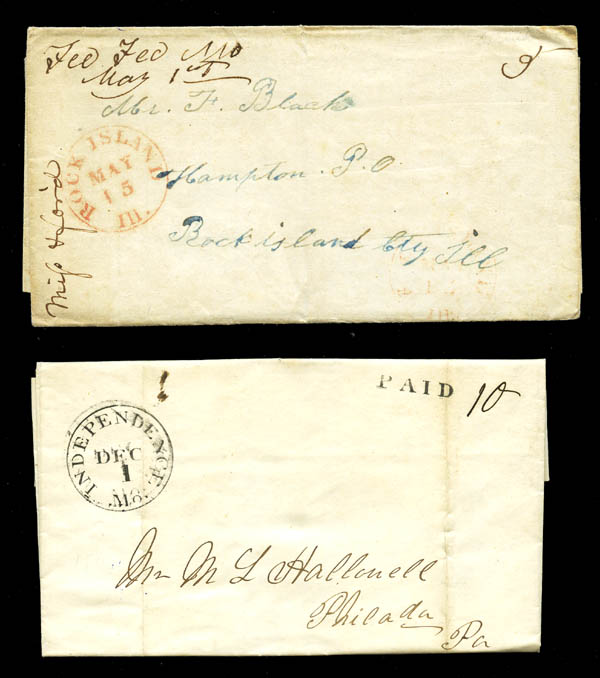 Fee Fee Mo
May 1st
5
Mr. F. Black
Hampton P.O.
Rock island Cty Ill
ROCK ISLAND
MAY
15
Ill.
Miss
PAID 10
INDEPENDENCE
DEC
1
Mo.
Mr M L Hallowell
Philada
Pa